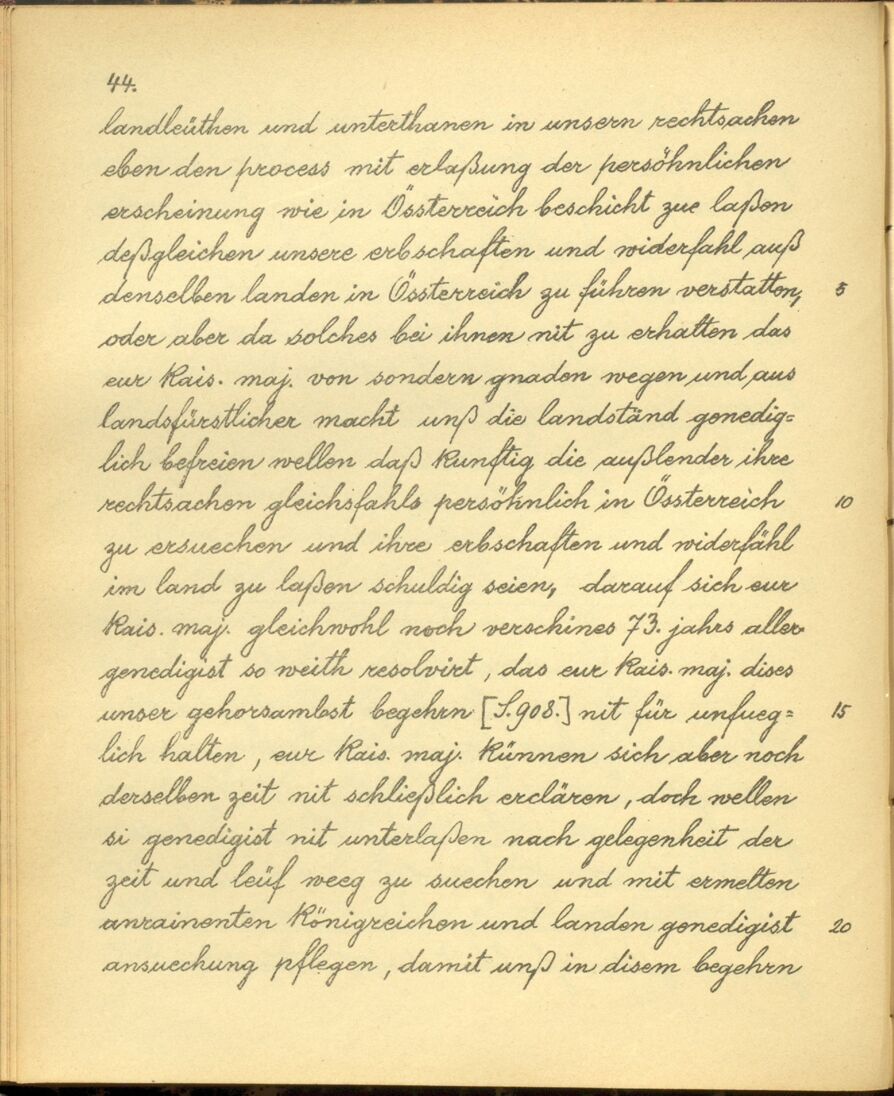 44.
landleüthen und unterthanen in unsern rechtsachen
eben den process mit erlaßung der persöhnlichen
erscheinung wie in Össterreich beschicht zue laßen
deßgleichen unsere erbschaften und widerfahl auß
denselben landen in Össterreich zu führen verstatten, 5
oder aber da solches bei ihnen nit zu erhalten das
eur Kais. maj. von sondern gnaden wegen und aus
landsfürstlicher macht unß die landständ genedig=
lich befreien wellen daß Kunftig die außlender ihre
rechtsachen gleichsfahls persöhnlich in Össterreich 10
zu ersuechen und ihre erbschaften und widerfähl
im land zu laßen schuldig seien, darauf sich eur
Kais. maj. gleichwohl noch verschines 73. jahrs aller
genedigist so weith resolvirt, das eur Kais. maj. dises
unser gehorsambst begehrn [S.908.] nit für unfueg= 15
lich halten, eur Kais. maj. Künnen sich aber noch
derselben zeit nit schließlich erclären, doch wellen
si genedigist nit unterlaßen nach gelegenheit der
zeit und leüf weeg zu suechen und mit ermelten
anrainenten Königreichen und landen genedigist 20
ansuechung pflegen, damit unß in disem begehrn